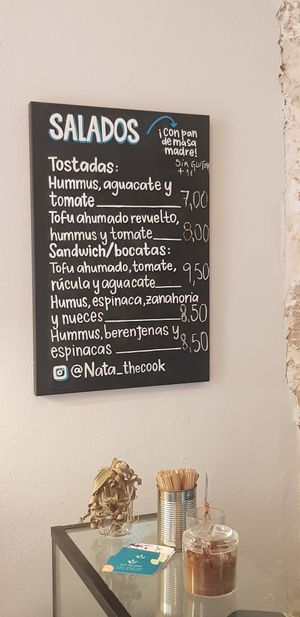 SALADOS
¡Con pan
de masa
madre!
Sin Gluten
+ 1€
Tostadas:
Hummus, aguacate y
tomate 7,00
Tofu ahumado revuelto,
hummus y tomate 8,00
Sandwich/bocatas:
Tofu ahumado, tomate,
rúcula y aguacate 9,50
Humus, espinaca, zanahoria
y nueces 8,50
Hummus, berenjenas y
espinacas 8,50
@Nata_thecook